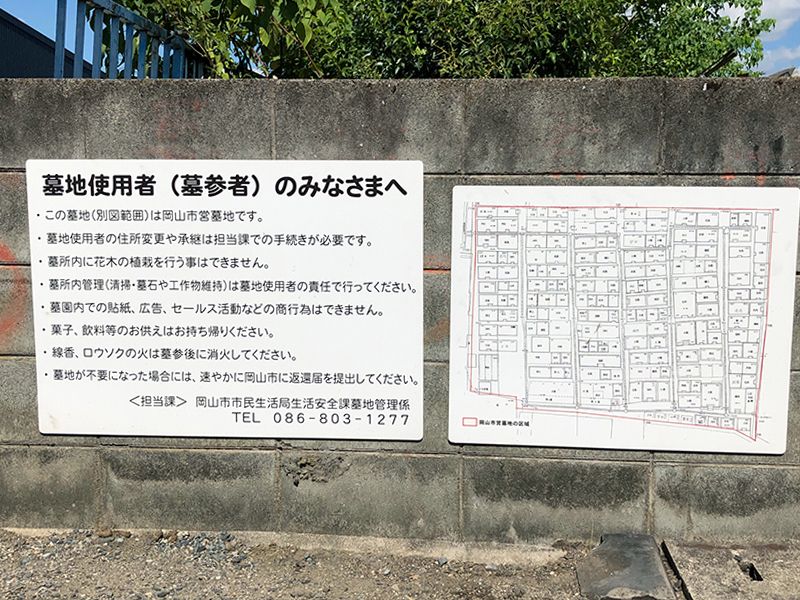 墓地使用者（墓参者）のみなさまへ
・この墓地（別図範囲）は岡山市営墓地です。
・墓地使用者の住所変更や承継は担当課での手続きが必要です。
・墓所内に花木の植栽を行う事はできません。
・墓所内管理（清掃・墓石や工作物維持）は墓地使用者の責任で行ってください。
・墓園内での貼紙、広告、セールス活動などの商行為はできません。
・菓子、飲料等のお供えはお持ち帰りください。
・線香、ロウソクの火は墓参後に消火してください。
・墓地が不要になった場合には、速やかに岡山市に返還届を提出してください。
＜担当課＞ 岡山市市民生活局生活安全課墓地管理係
TEL 086-803-1277
岡山市営墓地の区域